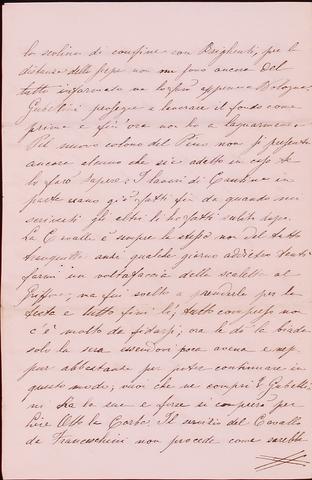 lo scolino di confine con Brighenti, per la
distanza delle pepe non me sono ancora del
tutto informato ma lo farò appena a Bologna.
Gabellini prosegue a lavorare il fondo come
prima e fin'ora non ho a lagnarmene.
Pel nuovo colono del Pino non si presenta
ancora alcuno che sia adetto in caso te
lo farò sapere. I lavori di Cantina in
parte erano già fatti fin da quando mi
scrivesti gli altri li ho fatti subito dopo.
La Cavalla è sempre la stessa non del tutto
tranquilla anzi qualche giorno addietro tentò
farmi un voltafaccia delle scalette al
ma fui svelto a prenderla per la
testa e tutto finì lì; tutto compreso non
c'è molto da fidarsi; ora le dò la biada
solo la sera essendovi poca avena e nep
pur abbastanza per poter continuare in
questo modo, vuoi che ne compri? Gabelli-
ni ha la sua e forse si comprerà per
lire Otto la Corba. Il servizio del Cavallo
da Franceschini non procede come sarebbe